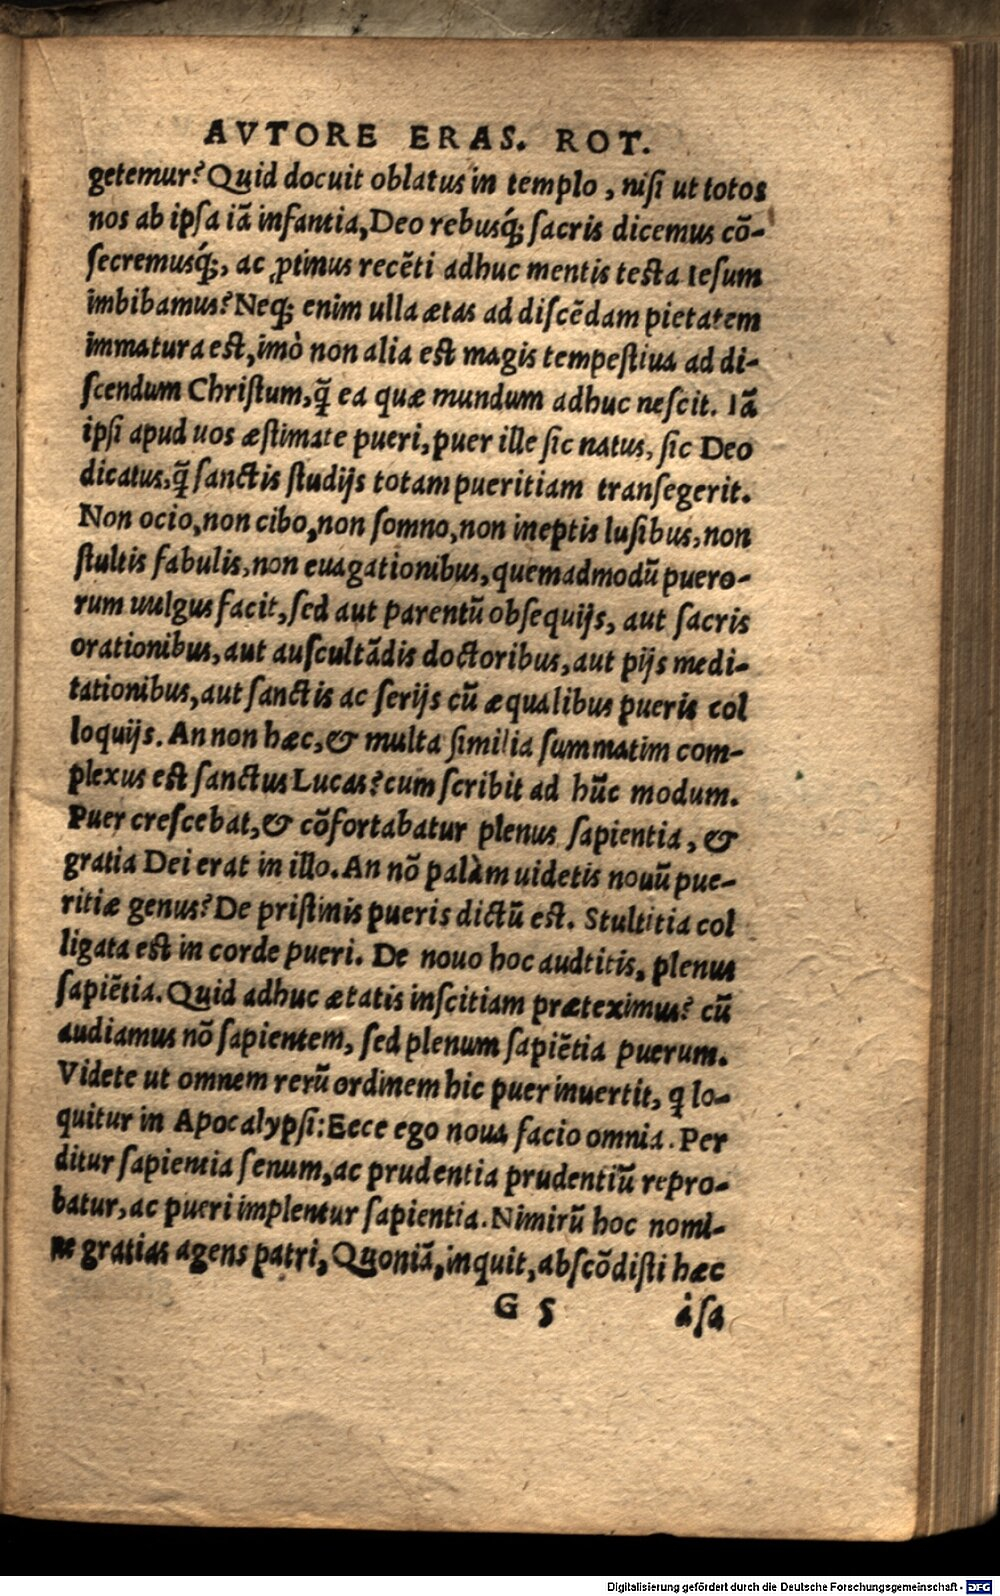 AVTORE ERAS. ROT.
getemur? Quid docuit oblatus in templo, nisi ut totos
nos ab ipsa iã infantia, Deo rebusq́; sacris dicemus cõ-
secremusq́;, ac ꝓtinus recẽti adhuc mentis testa Iesum
imbibamus? Neq; enim ulla ætas ad discẽdam pietatem
immatura est, imò non alia est magis tempestiua ad di-
scendum Christum, q̃ ea quæ mundum adhuc nescit. Iã
ipsi apud uos æstimate pueri, puer ille sic natus, sic Deo
dicatus, q̃ sanctis studijs totam pueritiam transegerit.
Non ocio, non cibo, non somno, non ineptis lusibus, non
stultis fabulis, non euagationibus, quemadmodũ puero-
rum uulgus facit, sed aut parentũ obsequijs, aut sacris
orationibus, aut auscultãdis doctoribus, aut pijs medi-
tationibus, aut sanctis ac serijs cũ æqualibus pueris col
loquijs. An non hæc, & multa similia summatim com-
plexus est sanctus Lucas? cum scribit ad hũc modum.
Puer crescebat, & cõfortabatur plenus sapientia, &
gratia Dei erat in illo. An nõ palàm uidetis nouũ pue-
ritiæ genus? De pristinis pueris dictũ est. Stultitia col
ligata est in corde pueri. De nouo hoc audtitis, plenus
sapiẽtia. Quid adhuc ætatis inscitiam præteximus? cũ
audiamus nõ sapientem, sed plenum sapiẽtia puerum.
Videte ut omnem rerũ ordinem hic puer inuertit, q̃ lo-
quitur in Apocalypsi: Ecce ego noua facio omnia. Per
ditur sapientia senum, ac prudentia prudentiũ repro-
batur, ac pueri implentur sapientia. Nimirũ hoc nomi-
ne gratias agens patri, Quoniã, inquit, abscõdisti hæc
G 5 à sa
Digitalisierung gefördert durch die Deutsche Forschungsgemeinschaft - DFG